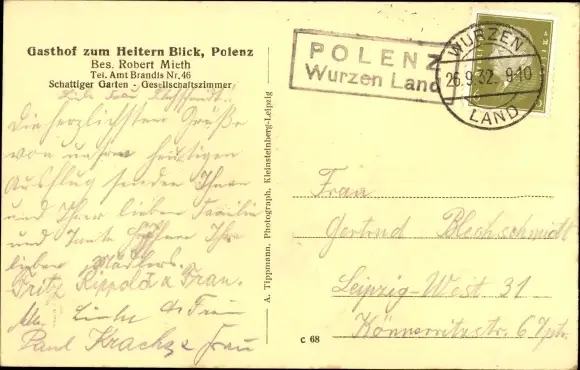 Gasthof zum Heitern Blick, Polenz
Bes. Robert Mieth
Tel. Amt Brandis Nr. 46
Schattiger Garten - Gesellschaftszimmer
Liebe Frau
Die herzlichsten Grüße
von unserm heutigen
Ausflug senden Ihnen
und Ihrer lieben Familie
und Tante Ihre
lieben
Fritz Rippold u Frau.
Linke
Paul Krachze Frau
A. Tippmann, Photograph, Kleinsteinberg-Leipzig
c 68
POLENZ
Wurzen Land
WURZEN
26.9.32. 9-10
LAND
Frau
Gertrud Blechschmidt
Leipzig-West 31
Könneritzstr. 6